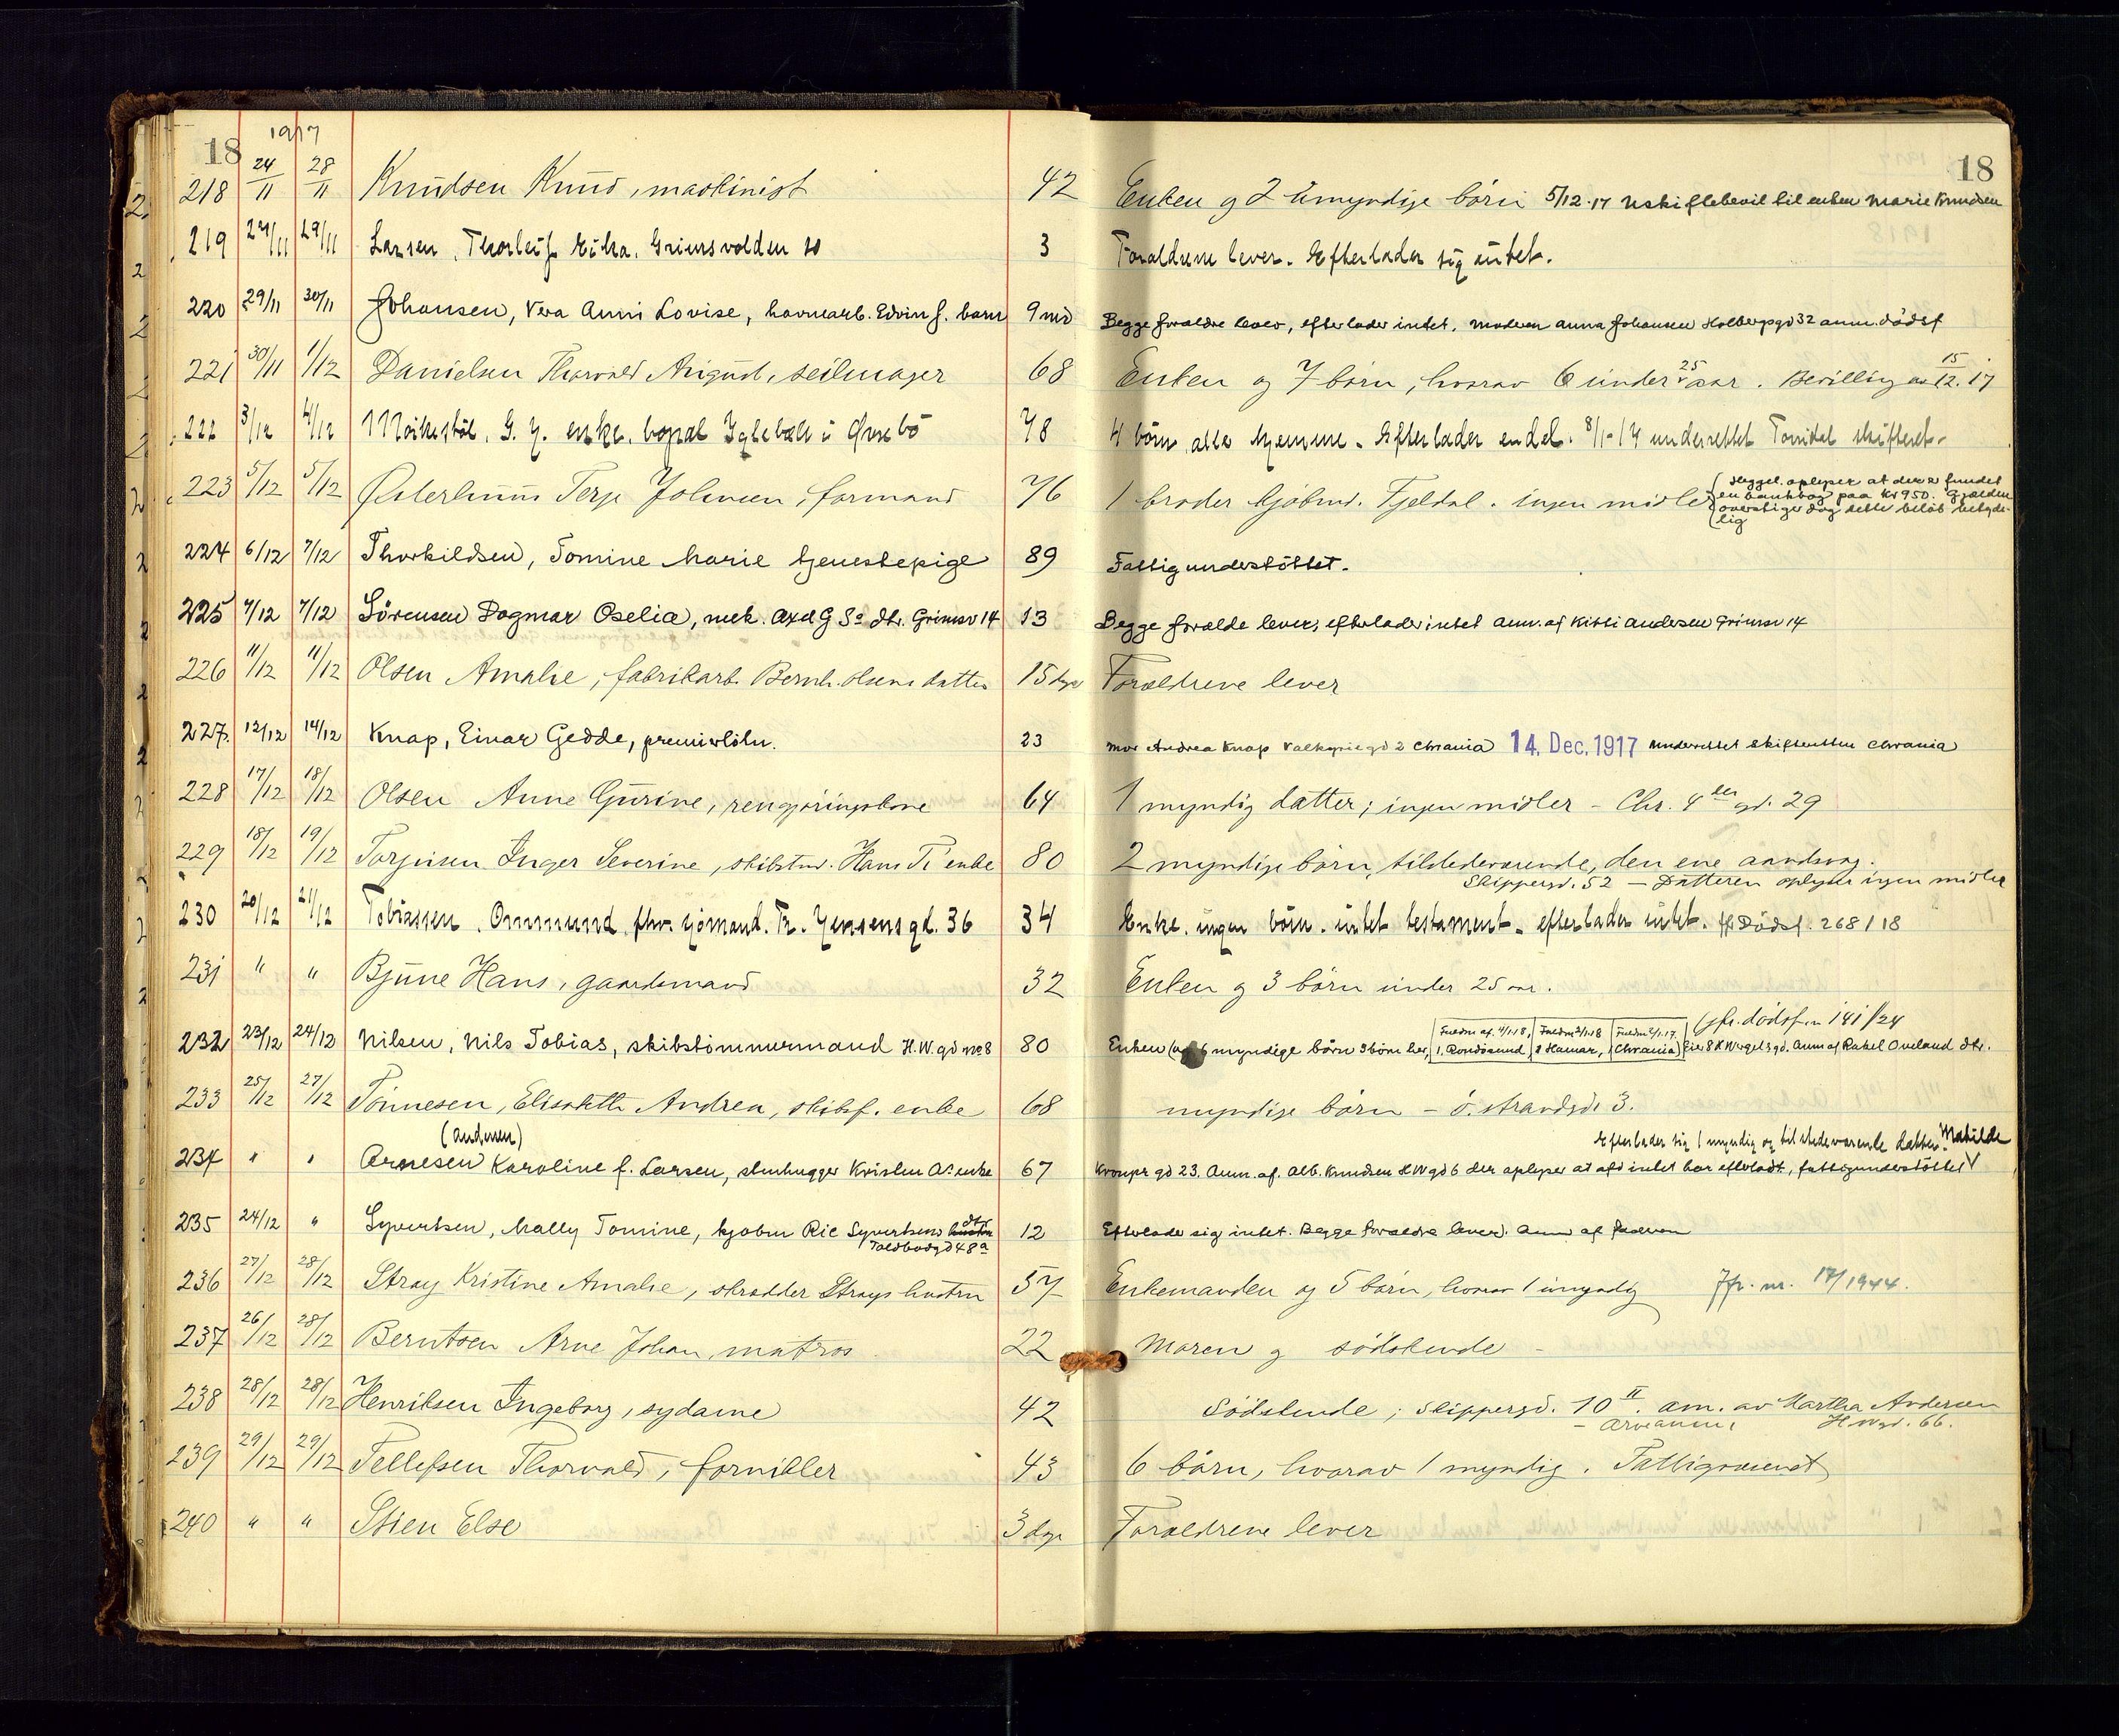 18 1917 18
218 24/11 28/11 Knudsen Knud, maskinist 42 Enken g 2 umyndige börn 5/12.17 Uskiftebevil til enken Marie Knudsen
219 24/11 29/11 Larsen, Thorleif Grimsvolden 10 3 Forældrene lever. Efterlader sig intet.
220 29/11 30/11 Johansen, Vera Anni Lovise, havnearb. Edvin J. barn 9 md Begge forældre lever, efterlader intet. Moderen Anna Johansen Holbergsgd 32 anm. dödsf
221 30/11 1/12 Danielsen Thorvald August, seilmager 68 Enken og 7 börn, hvorav 6 under 25 aar. Bevilling av 15/12.17
222 3/12 4/12 G. Y. enke, bopæl i Øvrebö 78 4 börn, alle hjemme. Efterlader endel. 8/1-17 underrettet skifteret.
223 5/12 5/12 Østerhuus Terje Johnsen, formand 76 1 broder kjöbmd. Fjeldal. ingen midler
oplyser at der er fundet
en bankbog paa Kr 950. Gjælden
overstiger dog dette belöb betyde-
lig
224 6/12 7/12 Thorkildsen, Tomine Marie tjenestepige 89 Fattigunderstöttet.
225 7/12 7/12 Sörensen Dagmar Oselia, mek. Axel G Sn dtr. Grimsv 14 13 Begge forælde lever, efterlader intet anm. af Kitti Andersen Grimsv 14
226 11/12 11/12 Olsen Amalie, fabrikarb. Bernh. Olsens datter 15 dge Forældrene lever
227. 12/12 14/12 Knap, Einar Gedde, premierlötn. 23 Mor Andrea Knap Valkyriegd 2 Chrania 14. Dec. 1917 underrettet skifteretten Chrania
228 17/12 18/12 Olsen Anne Gurine, rengjöringskone 64 1 myndig datter; ingen midler - Chr. 4des gd. 29
229 18/12 19/12 Torjusen Inger Severine, skibstmd. Hans Ts enke 80 2 myndige börn, tilstedeværende, den ene aandsvag.
Skippergd. 52 - Datteren oplyser ingen midler
230 20/12 21/12 Tobiassen, Ommund, fhv. sjömand. Th. Jensens gd. 36 34 Enke. ingen börn. intet testament. efterlader intet. jfr Dödsf. 268/18
231 " " Bjune Hans, gaardmand 32 Enken g 3 börn under 25 aar.
jfr. dödsf. n 141/24
232 23/12 24/12 Nilsen, Nils Tobias, skibstömmermand H.W.gd no 8 80 Enken og 6 myndige börn 3 börn her, Fuldm af 4/1.18, 1. Fuldm 2/1.18 2 Hamar, Fuldm 2/1.17 Chrania Eier 8 H Wergel3gd. Anm af Rakel Oveland dtr.
233 25/12 27/12 Tönnesen, Elisabeth Andrea, skibsf. enke 68 myndige börn - ö. strandgd. 3.
(Andersen) Efterlader sig 1 myndig og tilstedeværende datter Matilde
234 " " Arnesen Karoline f. Larsen, stenhugger Kristen As enke 67 Kronpr gd 23. Anm. af. Alb. Knudsen H W gd 6 der oplyser at afd intet har efterladt, fattigunderstöttet
235 24/12 " Syvertsen, Mally Tomine, kjöbm Ric Syvertsens hustru dtr 12 Efterlader sig intet. Begge forældre lever. Anm af faderen
Toldbodgd 48a
236 27/12 28/12 Stray Kristine Amalie, skrædder Strays hustru 57 Enkemanden og 5 börn, hvorav 1 umyndig Jfr. nr. 17/1944.
237 26/12 28/12 Berntsen Arne Johan, matros 22 Moren g södskende -
238 28/12 28/12 Henriksen Ingeborg, sydame 42 Södskende; Skippergd. 10 II. am. av Martha Andersen
- H W gd. 66.
239 29/12 29/12 Tellefsen Thorvald, fornikler 43 6 börn, hvorav 1 myndig. Fattigvæsenet
240 " " Stien Else 3 dge Forældrene lever